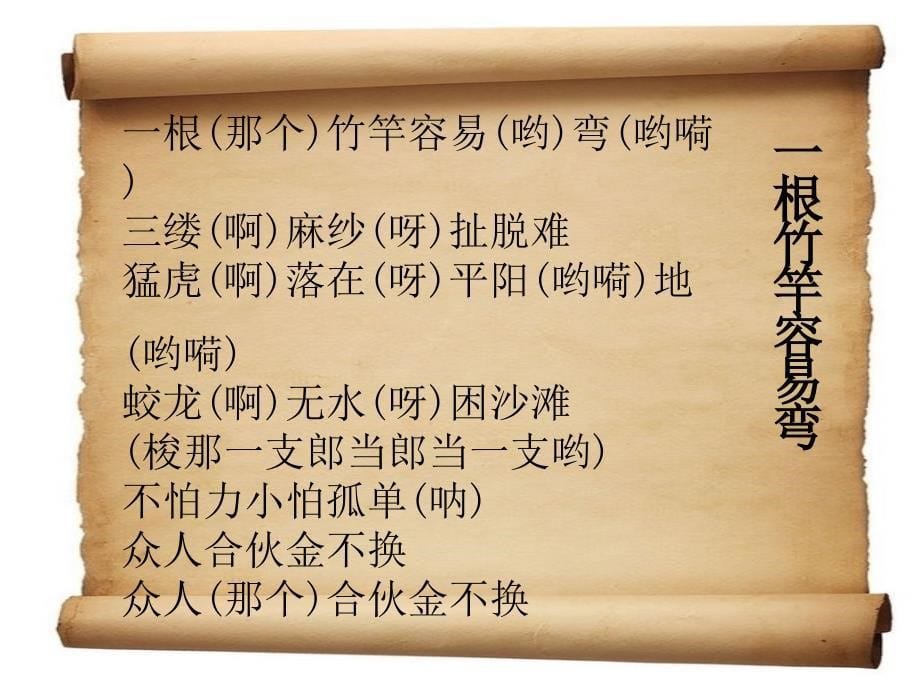 一根(那个)竹竿容易(哟)弯(哟嗬
)
三缕(啊)麻纱(呀)扯脱难
猛虎(啊)落在(呀)平阳(哟嗬)地
(哟嗬)
蛟龙(啊)无水(呀)困沙滩
(梭那一支郎当郎当一支哟)
不怕力小怕孤单(呐)
众人合伙金不换
众人(那个)合伙金不换
一根竹竿容易弯